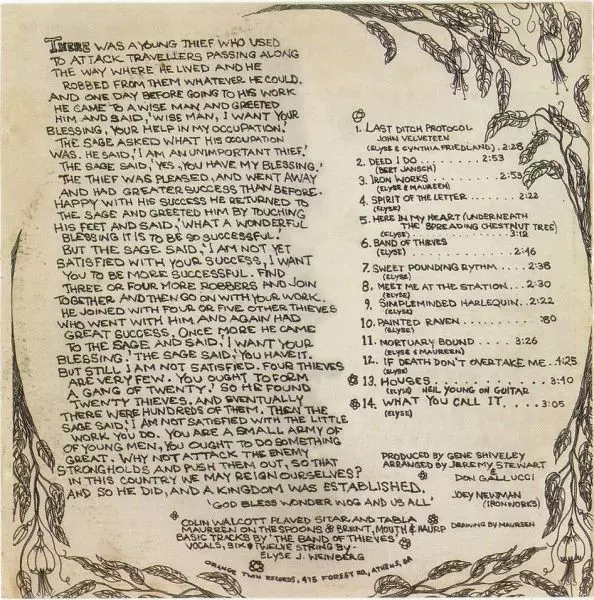 THERE WAS A YOUNG THIEF WHO USED
TO ATTACK TRAVELLERS PASSING ALONG
THE WAY WHERE HE LIVED AND HE
ROBBED FROM THEM WHATEVER HE COULD.
AND ONE DAY BEFORE GOING TO HIS WORK
HE CAME TO A WISE MAN AND GREETED
HIM AND SAID, 'WISE MAN, I WANT YOUR
BLESSING, YOUR HELP IN MY OCCUPATION.'
THE SAGE ASKED WHAT HIS OCCUPATION
WAS. HE SAID, 'I AM AN UNIMPORTANT THIEF.'
THE SAGE SAID, 'YES. YOU HAVE MY BLESSING.'
THE THIEF WAS PLEASED, AND WENT AWAY
AND HAD GREATER SUCCESS THAN BEFORE.
HAPPY WITH HIS SUCCESS HE RETURNED TO
THE SAGE AND GREETED HIM BY TOUCHING
HIS FEET AND SAID, 'WHAT A WONDERFUL
BLESSING IT IS TO BE SO SUCCESSFUL.'
BUT THE SAGE SAID, 'I AM NOT YET
SATISFIED WITH YOUR SUCCESS, I WANT
YOU TO BE MORE SUCCESSFUL. FIND
THREE OR FOUR MORE ROBBERS AND JOIN
TOGETHER AND THEN GO ON WITH YOUR WORK.
HE JOINED WITH FOUR OR FIVE OTHER THIEVES
WHO WENT WITH HIM AND AGAIN HAD
GREAT SUCCESS. ONCE MORE HE CAME
TO THE SAGE AND SAID, 'I WANT YOUR
BLESSING.' THE SAGE SAID, 'YOU HAVE IT.
BUT STILL I AM NOT SATISFIED. FOUR THIEVES
ARE VERY FEW. YOU OUGHT TO FORM
A GANG OF TWENTY.' SO HE FOUND
TWENTY THIEVES. AND EVENTUALLY
THERE WERE HUNDREDS OF THEM. THEN THE
SAGE SAID, 'I AM NOT SATISFIED WITH THE LITTLE
WORK YOU DO. YOU ARE A SMALL ARMY OF
OF YOUNG MEN, YOU OUGHT TO DO SOMETHING
GREAT. WHY NOT ATTACK THE ENEMY
STRONGHOLDS AND PUSH THEM OUT, SO THAT
IN THIS COUNTRY WE MAY REIGN OURSELVES?
AND SO HE DID, AND A KINGDOM WAS ESTABLISHED.
'GOD BLESS WONDER WOG AND US ALL'
COLIN WALCOTT PLAYED SITAR AND TABLA
MAUREEN ON THE SPOONS BRENT, MOUTH & HAURP
BASIC TRACKS BY 'THE BAND OF THIEVES'
VOCALS, SIX & TWELVE STRING BY-
ELYSE J. WEINBERG
ORANGE TWIN RECORDS, 475 FOREST RD., ATHENS, GA
1. LAST DITCH PROTOCOL
JOHN VELVETEEN
(ELYSE & CYNTHIA FRIEDLAND).. 2:28
2. DEED I DO ..... 2:53
(BERT JANSCH)
3. IRON WORKS ..... 2:53
(ELYSE & MAUREEN)
4. SPIRIT OF THE LETTER .... 2:22
(ELYSE)
5. HERE IN MY HEART (UNDERNEATH
THE SPREADING CHESTNUT TREE)
(ELYSE) 3:12
6. BAND OF THIEVES
(ELYSE) 2:46
7. SWEET POUNDING RYTHM .... 2:38
(ELYSE)
8. MEET ME AT THE STATION... 2:30
(ELYSE)
9. SIMPLEMINDED HARLEQUIN.. 2:22
(ELYSE)
10. PAINTED RAVEN ..... :80
(ELYSE)
11. MORTUARY BOUND .... 3:26
(ELYSE & MAUREEN)
12. IF DEATH DON'T OVERTAKE ME.. 4:25
(ELYSE)
13. HOUSES ........ 3:40
(ELYSE) NEIL YOUNG ON GUITAR
14. WHAT YOU CALL IT ..... 3:05
(ELYSE)
PRODUCED BY GENE SHIVELEY
ARRANGED BY JEREMY STEWART
& DON GALLUCCI
JOEY NEWMAN
(IRONWORKS)
DRAWING BY MAUREEN